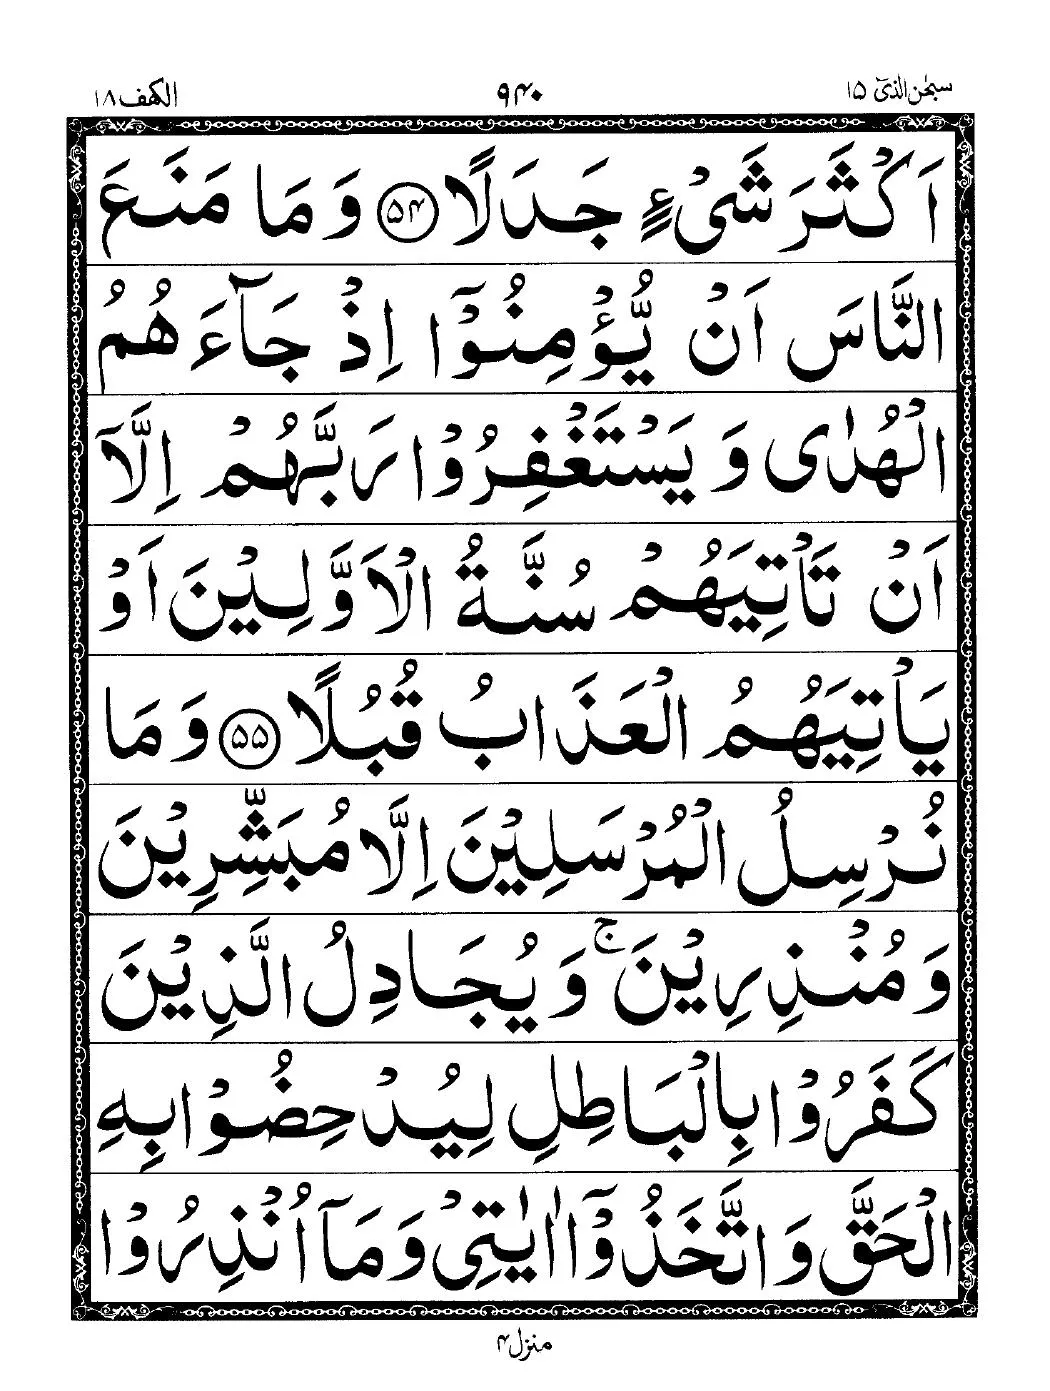 سبحٰن الذیٓ ۱۵ ۹۴۰ الکهف ۱۸
اَكْثَرَ شَیْءٍ جَدَلًا ۵۴ وَ مَا مَنَعَ
النَّاسَ اَنْ یُّؤْمِنُوْۤا اِذْ جَآءَهُمُ
الْهُدٰى وَ یَسْتَغْفِرُوْا رَبَّهُمْ اِلَّاۤ
اَنْ تَاْتِیَهُمْ سُنَّةُ الْاَوَّلِیْنَ اَوْ
یَاْتِیَهُمُ الْعَذَابُ قُبُلًا ۵۵ وَ مَا
نُرْسِلُ الْمُرْسَلِیْنَ اِلَّا مُبَشِّرِیْنَ
وَ مُنْذِرِیْنَ ۚ وَ یُجَادِلُ الَّذِیْنَ
كَفَرُوْا بِالْبَاطِلِ لِیُدْحِضُوْا بِهِ
الْحَقَّ وَ اتَّخَذُوْۤا اٰیٰتِیْ وَ مَاۤ اُنْذِرُوْا
منزل ۴